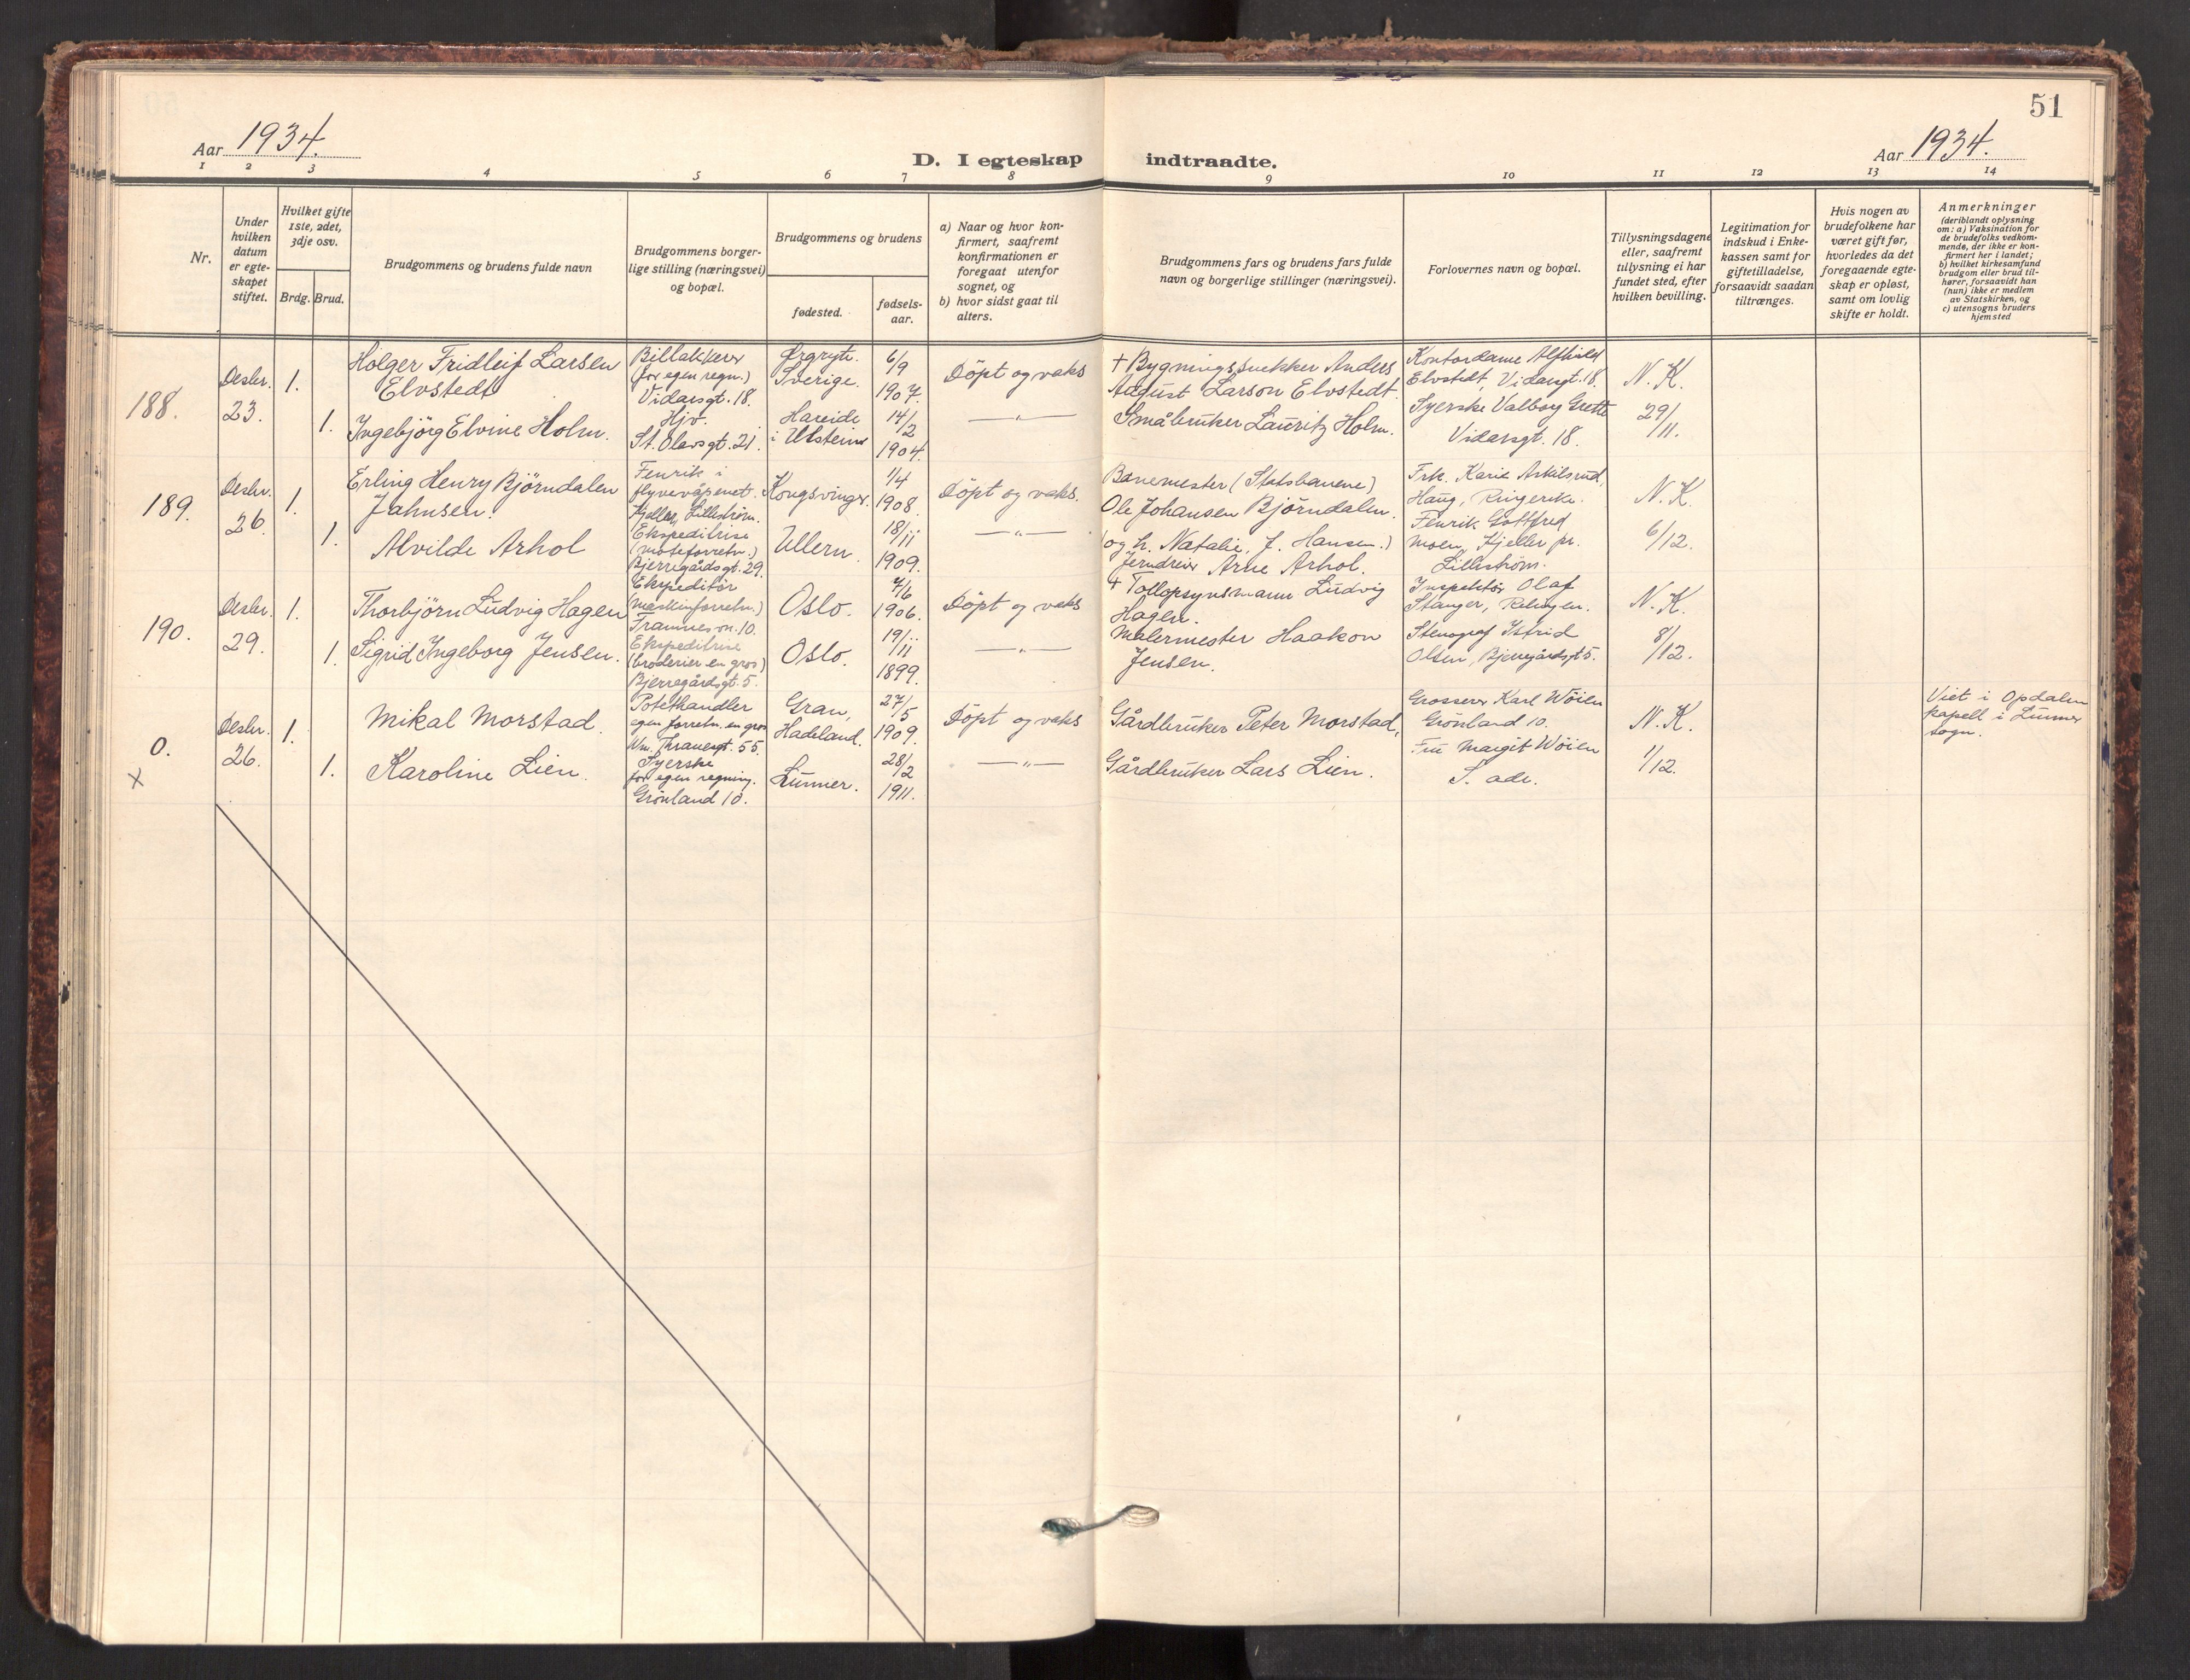 51
Aar 1934.
D. I egteskap indtraadte.
Aar 1934.
1 2 3 4 5 6 7 8 9 10 11 12 13 14
Nr.
Under hvilken datum er egte-skapet stiftet.
Hvilket gifte 1ste, 2det, 3dje osv.
Brdg. Brud.
Brudgommens og brudens fulde navn
Brudgommens borger-
lige stilling (næringsvei)
og bopæl.
Brudgommens og brudens
fødested.
fødsels-
aar.
a) Naar og hvor kon-
firmert, saafremt
konfirmationen er
foregaat utenfor
sognet, og
b) hvor sidst gaat til
alters.
Brudgommens fars og brudens fars fulde
navn og borgerlige stillinger (næringsvei).
Forlovernes navn og bopæl.
Tillysningsdagene
eller, saafremt
tillysning ei har
fundet sted, efter
hvilken bevilling.
Legitimation for
indskud i Enke-
kassen samt for
giftetilladelse,
forsaavidt saadan
tiltrænges.
Hvis nogen av
brudefolkene har
været gift før,
hvorledes da det
foregaaende egte-
skap er opløst,
samt om lovlig
skifte er holdt.
Anmerkninger
(deriblandt oplysning
om: a) Vaksination for
de brudefolks vedkom-
mende, der ikke er kon-
firmert her i landet;
b) hvilket kirkesamfund
brudgom eller brud til-
hører, forsaavidt han
(hun) ikke er medlem
av Statskirken, og
c) utensogns bruders
hjemsted
188.
Desbr.
23.
1.
1.
Holger Fridleif Larsen
Elvstedt
Ingebjörg Elvine Holm.
Billakkerer
(for egen regn.)
Vidarsgt. 18.
Hjv.
St. Olavsgt. 21.
Ørgryte.
Sverige.
Hareide
i Ulstein
6/9
1907.
14/2
1904.
Döpt og vaks
—„—
+ Bygningssnekker Anders
August Larson Elvstedt
Småbruker Lauritz Holm.
Kontordame Alfhild
Elvstedt, Vidarsgt. 18.
Syerske Valborg Grette
Vidarsgt. 18.
N. K.
29/11.
189.
Desbr.
26.
1.
1.
Erling Henry Björndalen
Jahnsen.
Alvilde Arhol
Fenrik i
flyvevåpenet.
Kjeller, Lilleström.
Ekspeditrise
(moteforretn.)
Bjerregårdsgt. 29.
Kongsvinger.
Ullern.
1/4
1908.
18/11
1909.
Döpt og vaks.
—„—
Banemester (Statsbanene)
Ole Johansen Björndalen.
(og h. Natalie, J. Hansen.)
Jerndreier Arne Arhol.
Frk. Karie Askilsrud,
Haug, Ringerike.
Fenrik Gottfred
Moen, Kjeller pr.
Lilleström.
N. K.
6/12.
190.
Desbr.
29.
1.
1.
Thorbjörn Ludvig Hagen
Sigrid Ingeborg Jensen.
Ekspeditör
(maskinforretn.)
10.
Ekspeditrise
(broderier en gros)
Bjerregårdsgt. 5.
Oslo.
Oslo.
7/6
1906.
19/11
1899.
Döpt og vaks
—„—
+ Tollopsynsmann Ludvig
Hagen.
Malermester Haakon
Jensen.
Inspektör Olaf
Stanger,
Stenograf
Olsen, Bjerregårdsgt 5.
N. K.
8/12.
0.
x
Desbr.
26.
1.
1.
Mikal Morstad.
Karoline Lien.
Potethandler
egen forretn. en gros
Wm. Thranesgt. 55.
Syerske
for egen regning.
Grönland 10.
Gran,
Hadeland.
Lunner.
27/5
1909.
28/2
1911.
Döpt og vaks
—„—
Gårdbruker Peter Morstad,
Gårdbruker Lars Lien.
Grosserer Karl Wöien
Grönland 10.
Fru Margit Wöien
S. adr.
N. K.
1/12.
Viet i Opdalen
kapell i Lunner
sogn.